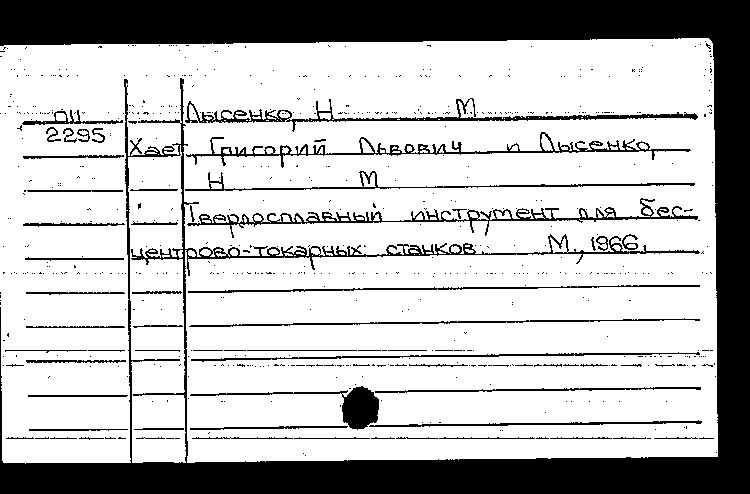 ОП Лысенко, Н М
2295
Хает, Григорий Львович и Лысенко,
Н М
Твердосплавный инструмент для бес-
центрово-токарных станков. М., 1966.